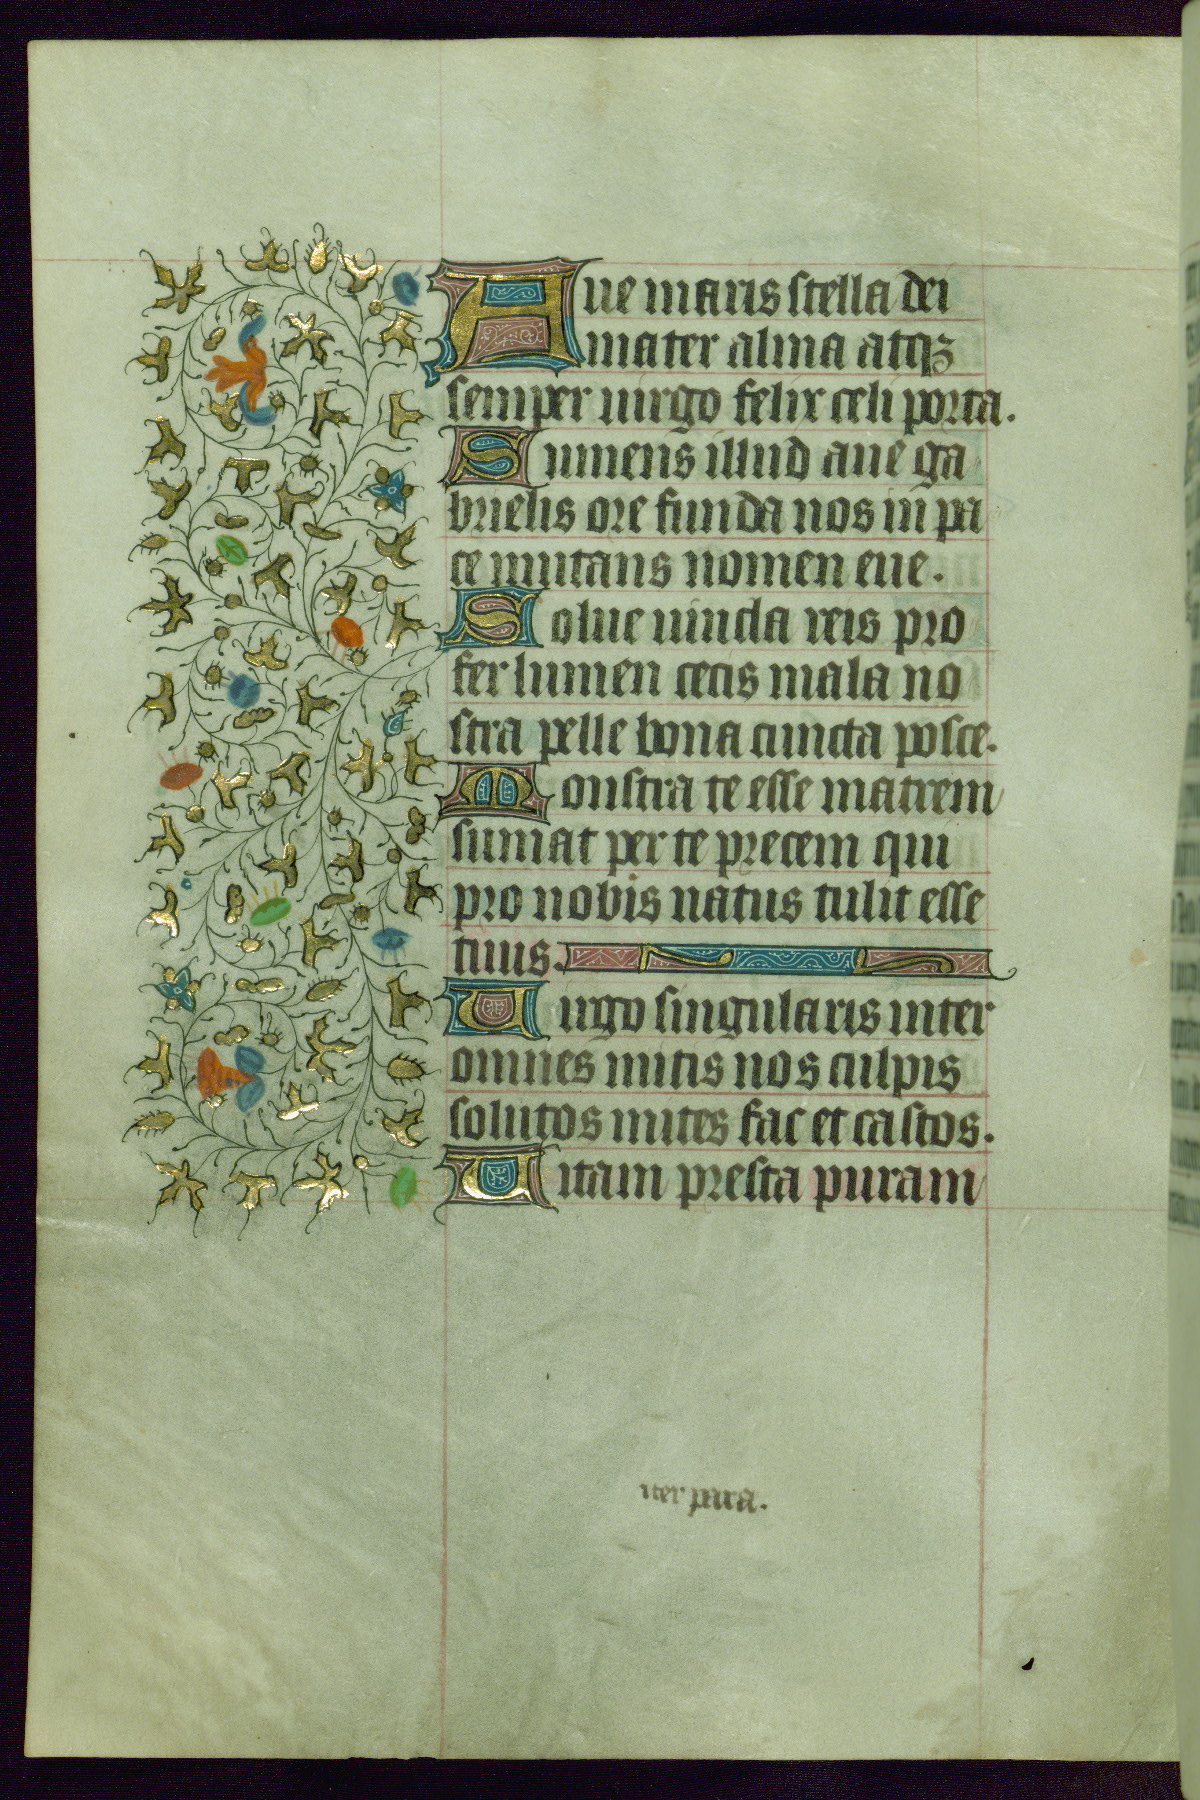 Aue maris stella dei
mater alma atqꝫ
semper uirgo felix celi porta.
Sumens illud aue ga
brielis ore funda nos in pa
ce mutans nomen eue.
Solue uincla reis pro
fer lumen cecis mala no
stra pelle bona cuncta posce.
Monstra te esse matrem
sumat per te precem qui
pro nobis natus tulit esse
tuus.
Uirgo singularis inter
omnes mitis nos culpis
solutos mites fac et castos.
Uitam presta puram
iter para.